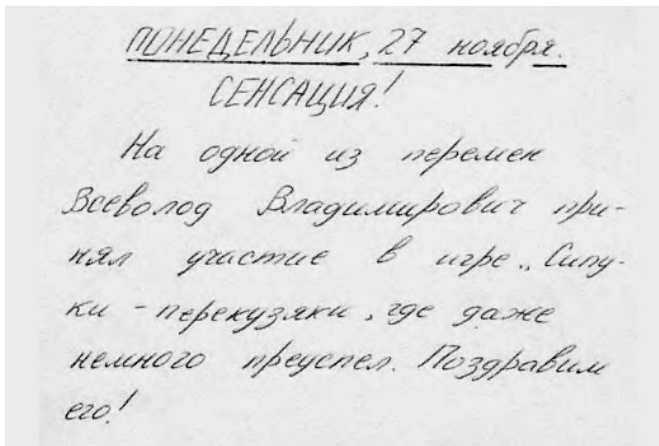 ПОНЕДЕЛЬНИК, 27 ноября.
СЕНСАЦИЯ!
На одной из перемен
Всеволод Владимирович при-
нял участие в игре „Сипу-
ки - перекузяки, где даже
немного преуспел. Поздравим
его!